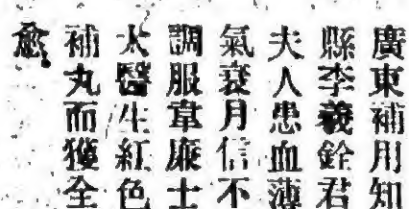 廣東補用知
縣李羲銓君
夫人患血薄
氣衰月信不
調服韋廉士
大醫生紅色
補丸而獲全
愈